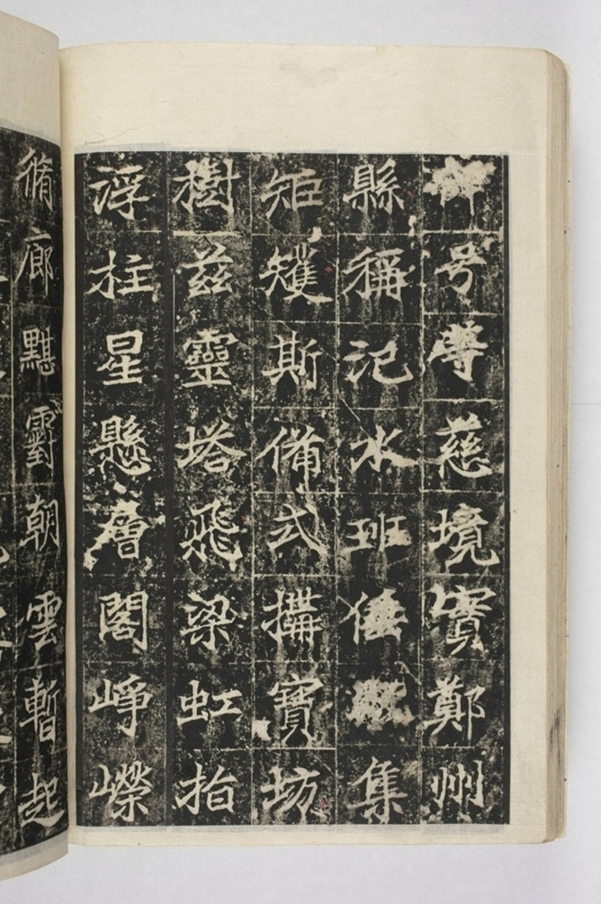 号等慈境實鄭州
縣稱汜水班倕集
矩矱斯備式搆寶坊
樹茲靈塔飛梁虹指
浮柱星懸層閣崢嶸
脩廊黮䨴朝雲暫起